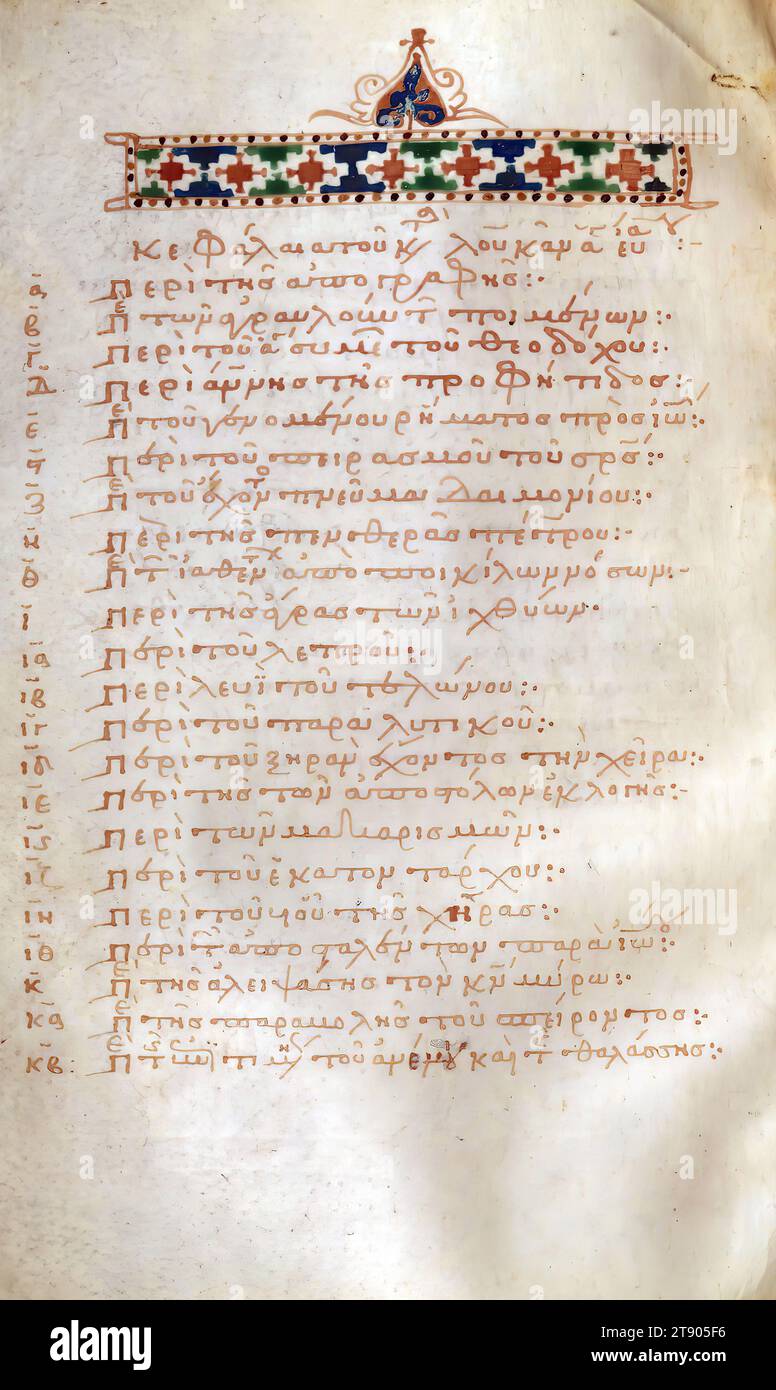 Κεφάλαια τοῦ κατὰ λουκᾶν ἁγίου εὐ:-
α περὶ τῆς ἀπογραφῆς:·
β πε τῶν ἀγραυλούντ ποιμένων:·
γ περὶ τοῦ ἁ συμε τοῦ θεοδόχου:·
δ περὶ ἄννης τῆς προφήτιδος:
ε πε τοῦ γενομένου ῥήματος πρὸς ἰω:·
ϛ περὶ τοῦ πειρασμοῦ τοῦ σρς:·
ζ πε τοῦ ἔχοντ πνεῦμα δαιμονίου:·
η περὶ τῆς πενθερᾶς πέτρου:·
θ πε τ ἰαθεντ ἀπὸ ποικίλων νόσων:-
ι περὶ τῆς ἄγρας τῶν ἰχθύων·
ια περὶ τοῦ λεπροῦ:·
ιβ περὶ λευῒ τοῦ τελώνου:·
ιγ περὶ τοῦ παραλυτικοῦ:·
ιδ περὶ τοῦ ξηρὰν ἔχοντος τὴν χεῖρα:
ιε περὶ τῆς τῶν ἀποστόλων ἐκλογῆς:-
ιϛ περὶ τῶν μακαρισμῶν:·
ιζ περὶ τοῦ ἑκατοντάρχου:·
ιη περὶ τοῦ υἱοῦ τῆς χήρας:·
ιθ περὶ τ ἀποσταλέντων παρὰ ἰω:·
κ πε τῆς ἀλειψάσης τὸν κν μύρω:·
κα πε τῆς παραβολῆς τοῦ σπείροντος:·
κβ: πε τ ἐπιτιμη τοῦ ἀνέμου καὶ τ θαλάσσης:·
alamy
alamy
alamy
alamy
Image ID: 2T905F6
www.alamy.com